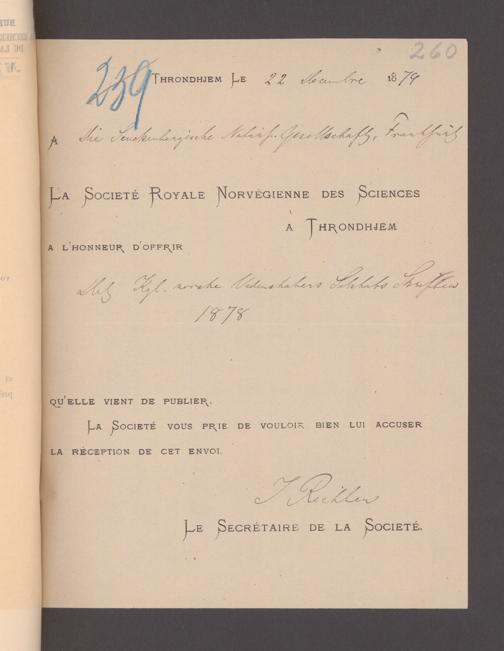 260
239
Throndhjem Le 22 1879
A Die Senckenbergische Naturf. Gesellschaft, Frankfurt
La Societé Royale Norvégienne des Sciences
à Throndhjem
a l'honneur d'offrir
Det Kgl. norske Videnskabers Selskabs Skrifter
1878
qu'elle vient de publier.
La Societé vous prie de vouloir bien lui accuser
la réception de cet envoi.
Le Secrétaire de la Societé.